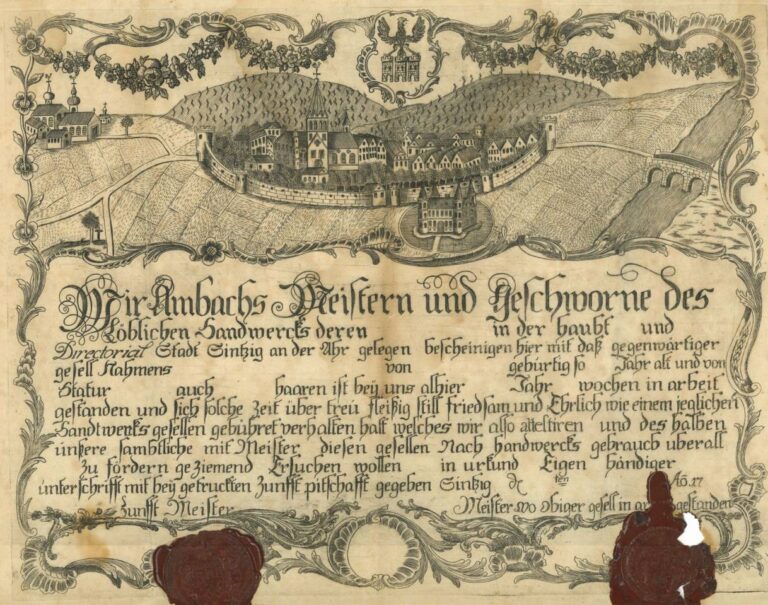 Wir Ambachs Meistern und Geschworne des
Löblichen Handwercks deren in der haubt und
Directorial Stadt Sintzig an der Ahr gelegen bescheinigen hier mit daß gegenwärtiger
gesell Nahmens von gebürtig so Jahr alt und von
Statur auch haaren ist beÿ uns alhier Jahr wochen in arbeit
gestanden und sich solche Zeit über treü fleißig still friedsam und Ehrlich wie einem jeglichen
Handtwercks gesellen gebühret verhalten hatt welches wir also attestiren und deshalben
unßere sambtliche mit Meister diesen gesellen Nach handwercks gebrauch überall
Zu fördern geziemend Ersuchen wollen in urkund Eigen händiger
unterschrifft mit beÿ getruckten Zunfft pitschafft gegeben Sintzig ten Ao. 17
Zunfft Meister Meister wo obiger gesell in gestanden